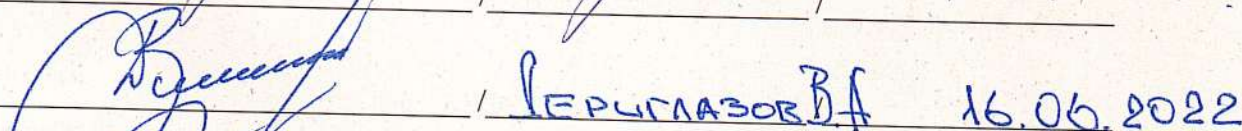 / Периглазов В А 16.06.2022